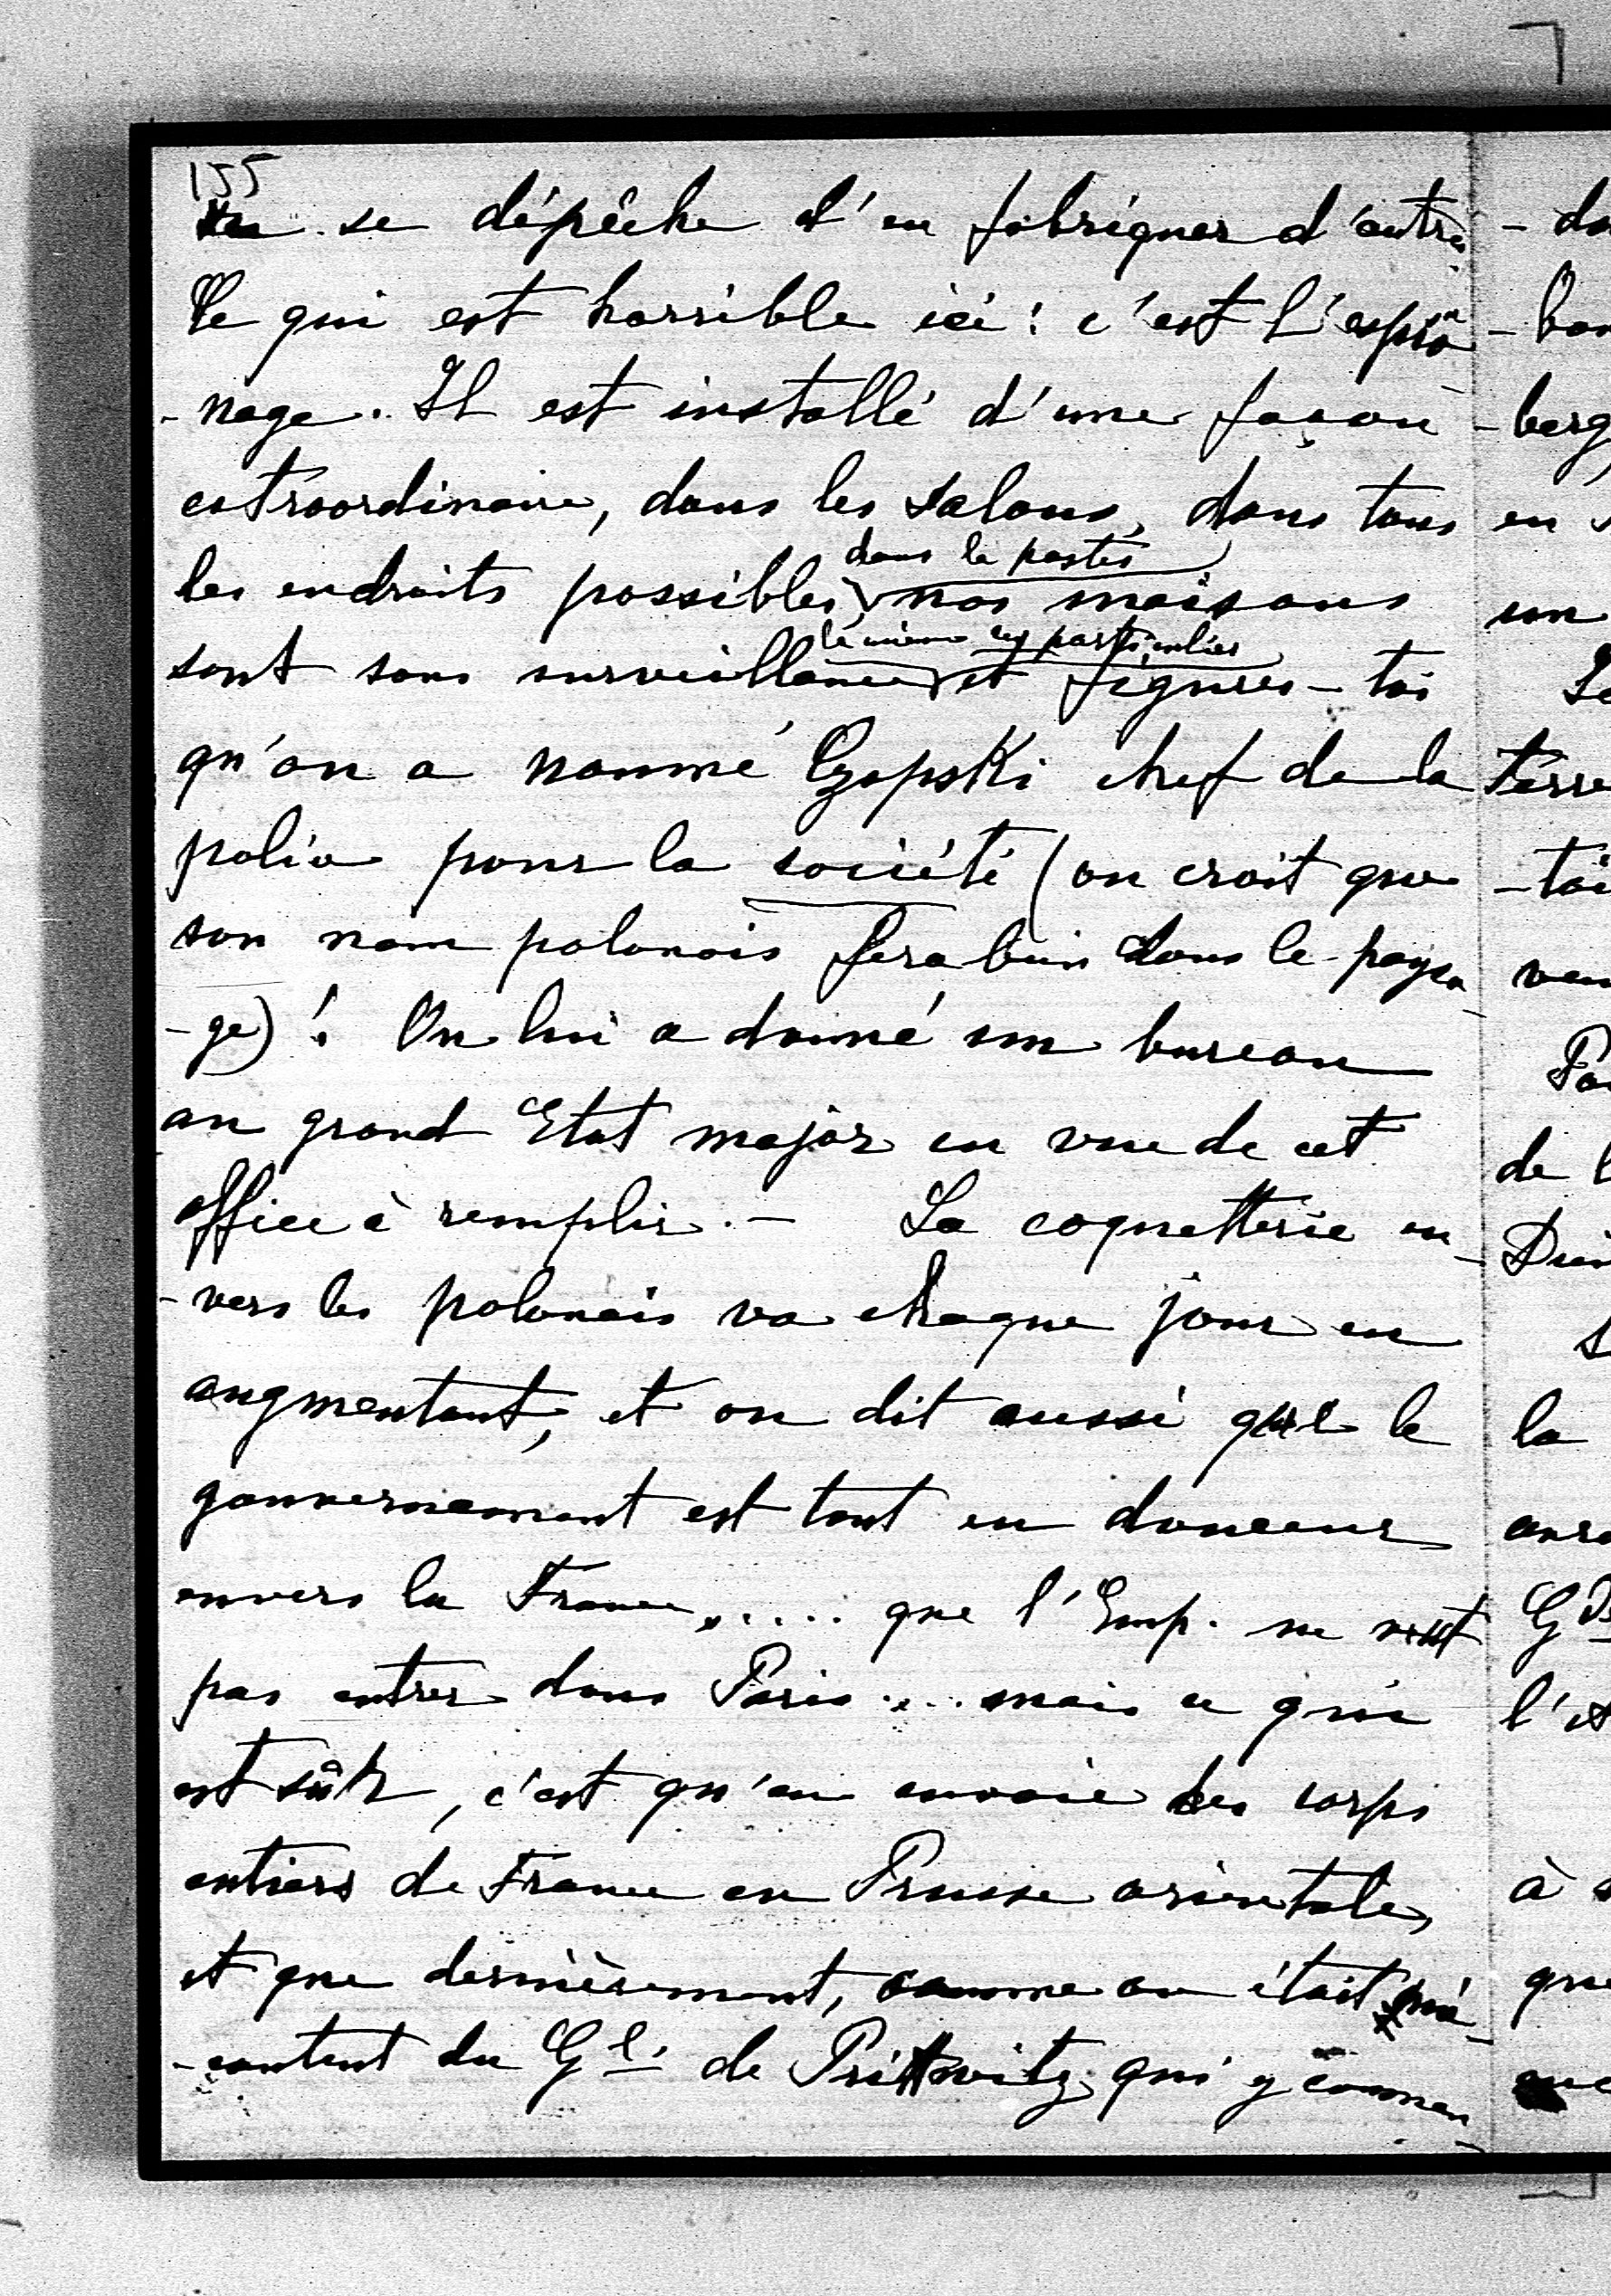 155
on se dépêche d'en fabriquer d'autres
Ce qui est horrible ici : c'est l'espion
-nage. Il est installé d'une façon
extraordinaire, dans les salons, dans tous
dans les postes
les endroits possibles, nos maisons
la mienne en particulier
sont sous surveillance et figures-toi
qu'on a nommé Czapski chef de la
police pour la société (on croit que
son nom polonais fera bien dans le paysa-
-ge) ! On lui a donné un bureau
au grand Etat major en vue de cet
office à remplir. — La coquetterie en-
-vers les polonais va chaque jour en
augmentant, et on dit aussi que le
gouvernement est tout en douceur
envers la France ..... que l'Emp. ne veut
pas entrer dans Paris .... mais ce qui
est sûr, c'est qu'on envoie des corps
entiers de France en Prusse orientale,
et que dernièrement, comme on était mé-
-content du Gl. de Prittwitz qui y comman-
- do
- bon
- berg
en
un
terre
- toi
de l
la
l'A
à
que